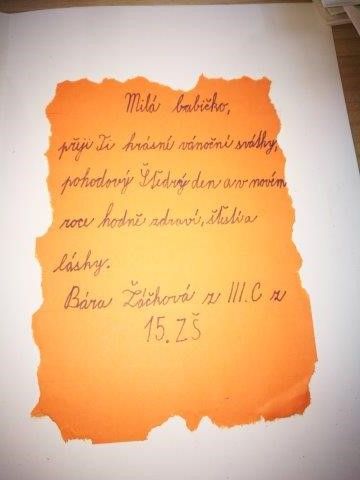 Milá babičko,
přeji Ti krásné vánoční svátky,
pohodový Štědrý den a v novém
roce hodně zdraví, štěstí a
lásky.
Bára Žáčková z III.C z
15. ZŠ